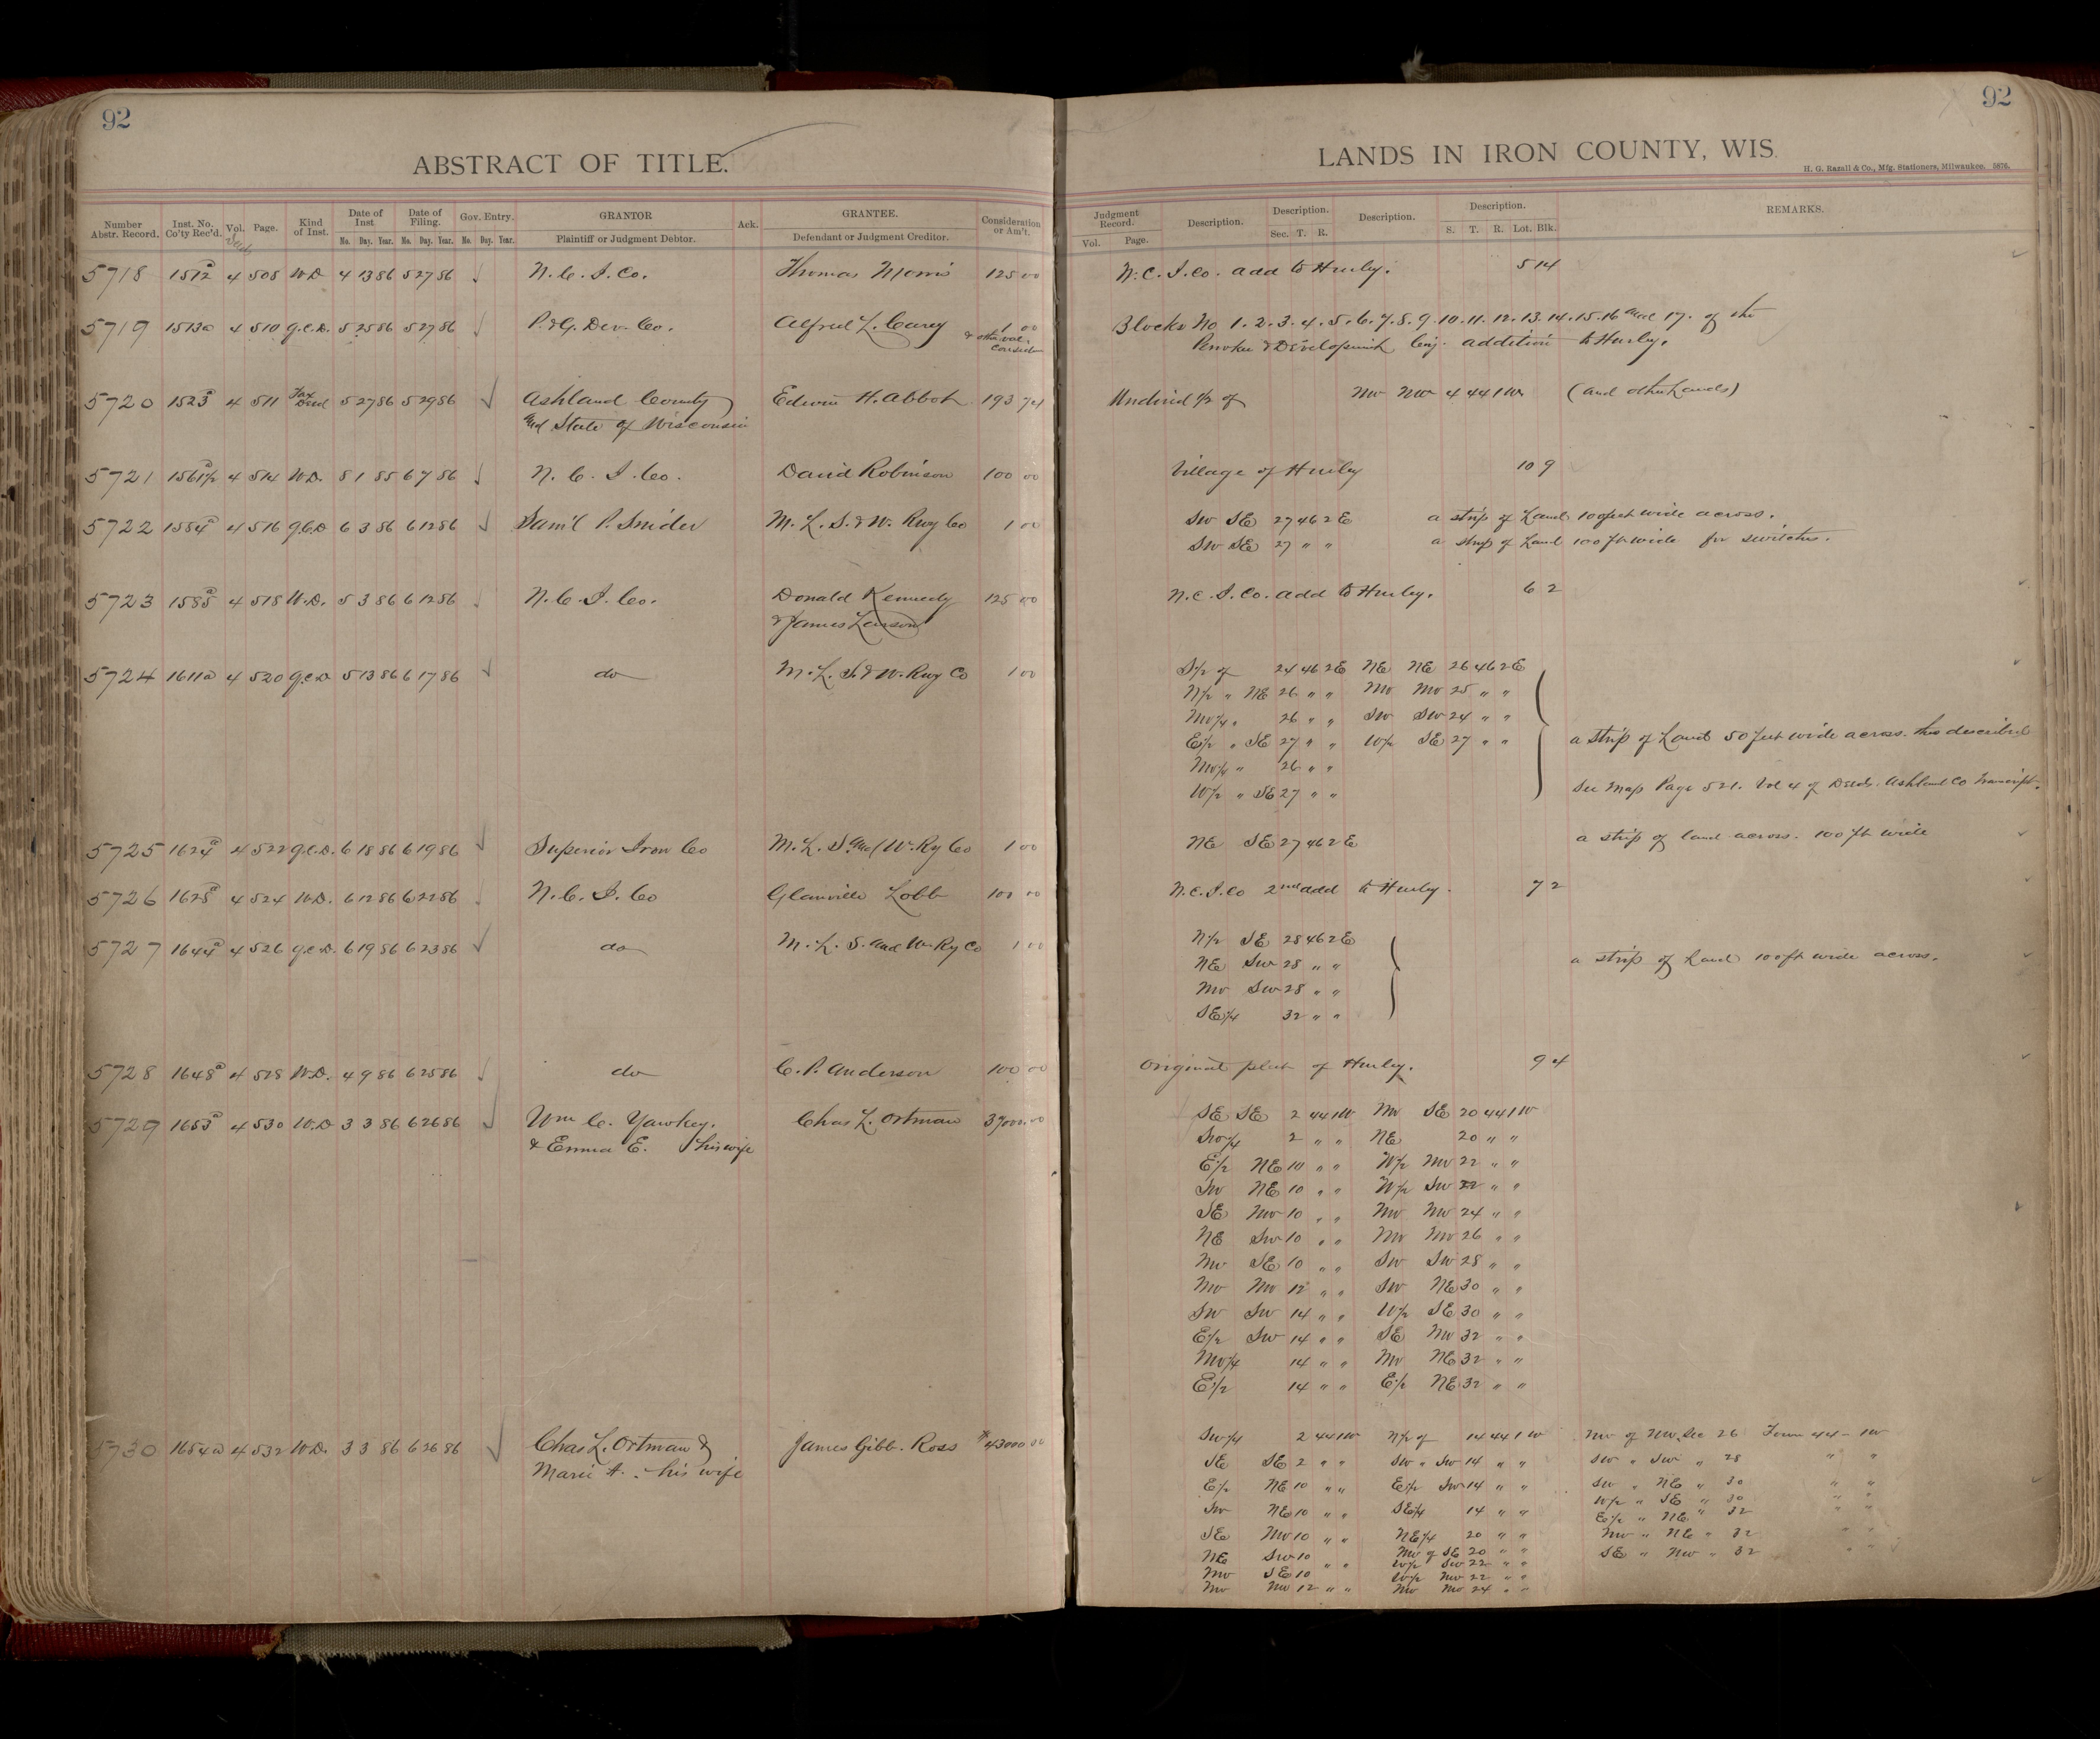 92
ABSTRACT OF TITLE.
Number Abstr. Record. Inst. No. Co'ty Rec'd. Vol. Page. Kind of Inst. Date of Inst. No. Day. Year. Date of Filing. No. Day. Year. Gov. Entry. No. Day. Year. GRANTOR Plaintiff or Judgment Debtor. Ack. GRANTEE. Defendant or Judgment Creditor. Consideration or Am't.
5718 1512a 4 508 W.D. 4 13 86 5 27 86 N.C.I.Co. Thomas Morris 125 00
5719 1513a 4 510 Q.C.D. 5 25 86 5 27 86 P.&G. Dev. Co. Alfred L. Carey 1 00
& other val. Consid
5720 1523a 4 511 Tax Deed 5 27 86 5 29 86 Ashland County Edwin H. Abbot 193 74
and State of Wisconsin
5721 1561½a 4 514 W.D. 8 1 85 6 7 86 N.C.I.Co. David Robinson 100 00
5722 1584a 4 516 Q.C.D 6 3 86 6 12 86 Sam'l P. Snider M.L.S.&W. Rwy Co 1 00
5723 1585a 4 518 W.D. 5 3 86 6 12 86 N.C.I.Co. Donald Kennedy 125 00
& James Larson
5724 1611a 4 520 Q.C.D 5 13 86 6 17 86 do M.L.S.&W. Rwy Co 1 00
5725 1624a 4 522 Q.C.D. 6 18 86 6 19 86 Superior Iron Co M.L.S. and W. Ry Co 1 00
5726 1625a 4 524 W.D. 6 12 86 6 22 86 N.C.I.Co Glanville Lobb 100 00
5727 1644a 4 526 Q.C.D. 6 19 86 6 23 86 do M.L.S. and W. Ry Co 1 00
5728 1648a 4 528 W.D. 4 9 86 6 25 86 do C.P. Anderson 100 00
5729 1653a 4 530 W.D 3 3 86 6 26 86 Wm C. Yawkey. Chas L. Ortman 37000.00
& Emma E. his wife
5730 1654a 4 532 W.D. 3 3 86 6 26 86 Chas L. Ortman & James Gibb. Ross 43000 00
Marie A. his wife
92
LANDS IN IRON COUNTY, WIS.
H. G. Razall & Co., Mfg. Stationers, Milwaukee. 5876.
Judgment Record. Vol. Page. Description. Description. Sec. T. R. Description. Description. S. T. R. Lot. Blk. REMARKS.
N.C.I.Co. add to Hurley. 5 14
Blocks No 1. 2. 3. 4. 5. 6. 7. 8. 9. 10. 11. 12. 13. 14. 15. 16 and 17. of the
Penokee & Development Coy. addition to Hurley.
Undivid ½ of NW NW 4 44 1W (and other Lands)
Village of Hurley 10 9
SW SE 27 46 2E a strip of Land 100 feet wide across.
SW SE 27 " " a strip of Land 100 ft wide for switches.
N.C.I.Co. add to Hurley. 6 2
S½ of 24 46 2E NE NE 26 46 2E
N½ " NE 26 " " NW NW 25 " "
NW¼ " 26 " " SW SW 24 " "
E½ " SE 27 " " W½ SE 27 " " a strip of Land 50 feet wide across. this described
NW¼ " 26 " "
W½ " SE 27 " " See Map Page 521. Vol 4 of Deeds. Ashland Co Transcript.
NE SE 27 46 2E a strip of land across. 100 ft wide
N.C.I.Co 2nd add to Hurley. 7 2
N½ SE 28 46 2E
NE SW 28 " " a strip of Land 100 ft wide across.
NW SW 28 " "
SE¼ 32 " "
Original plat of Hurley. 9 4
SE SE 2 44 1W NW SE 20 44 1W
SW¼ 2 " " NE 20 " "
E½ NE 10 " " W½ NW 22 " "
SW NE 10 " " W½ SW 22 " "
SE NW 10 " " NW NW 24 " "
NE SW 10 " " NW NW 26 " "
NW SE 10 " " SW SW 28 " "
NW NW 12 " " SW NE 30 " "
SW SW 14 " " W½ SE 30 " "
E½ SW 14 " " SE NW 32 " "
NW¼ 14 " " NW NE 32 " "
E½ 14 " " E½ NE 32 " "
SW¼ 2 44 1W N½ of 14 44 1W NW of NW Sec 26 Town 44 - 1W
SE SE 2 " " SW " SW 14 " " SW " SW " 28 " "
E½ NE 10 " " E½ SW 14 " " SW " NE " 30 " "
SW NE 10 " " SE¼ 14 " " W½ " SE " 30 " "
E½ " NE " 32 " "
SE NW 10 " " NE¼ 20 " " NW " NE " 32 " "
NE SW 10 NW of SE 20 " " SE " NW " 32 " "
NW SE 10 " " W½ SW 22 " "
W½ NW 22 " "
NW NW 12 " " NW NW 24 " "